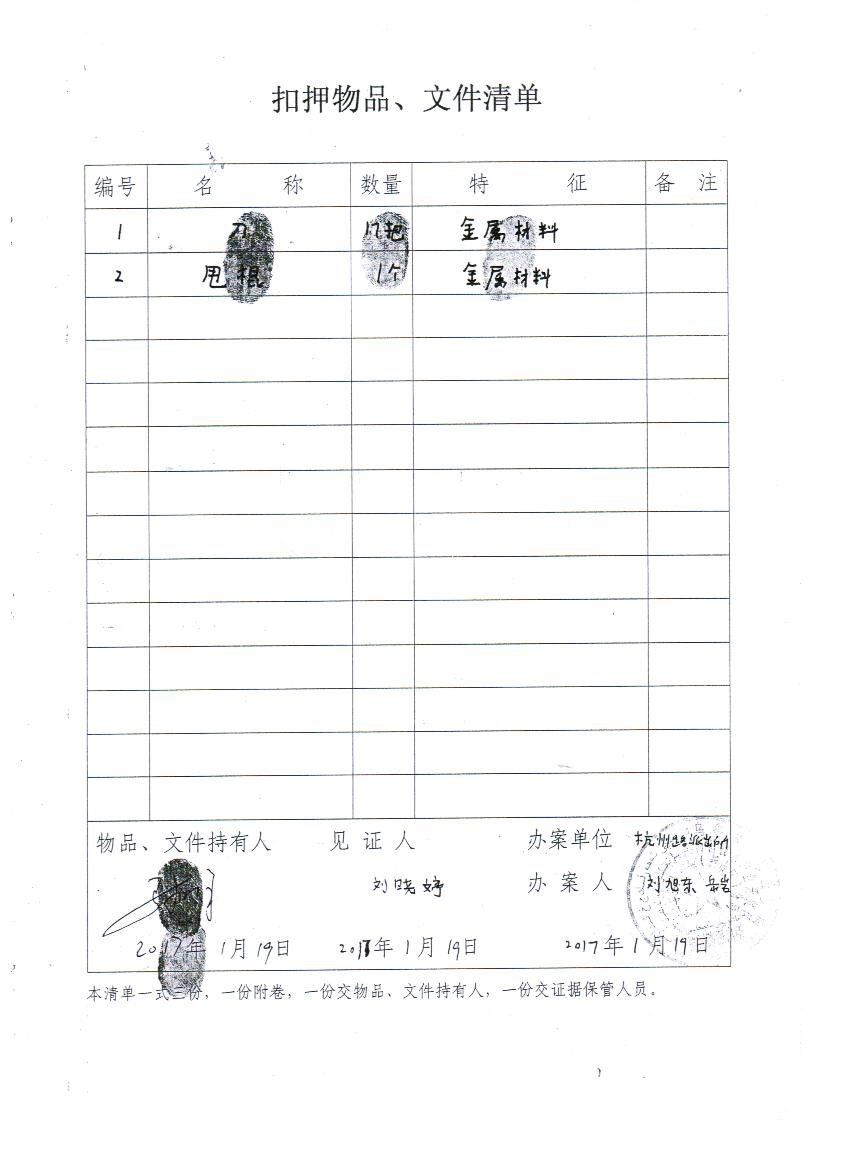 扣押物品、文件清单
编号 名称 数量 特征 备注
1 刀 17把 金属材料
2 甩棍 1个 金属材料
物品、文件持有人 见证人 办案单位 杭州路派出所
刘晓婷 办案人 刘旭东 岳岩
2017年1月19日 2017年1月19日 2017年1月19日
本清单一式三份，一份附卷，一份交物品、文件持有人，一份交证据保管人员。